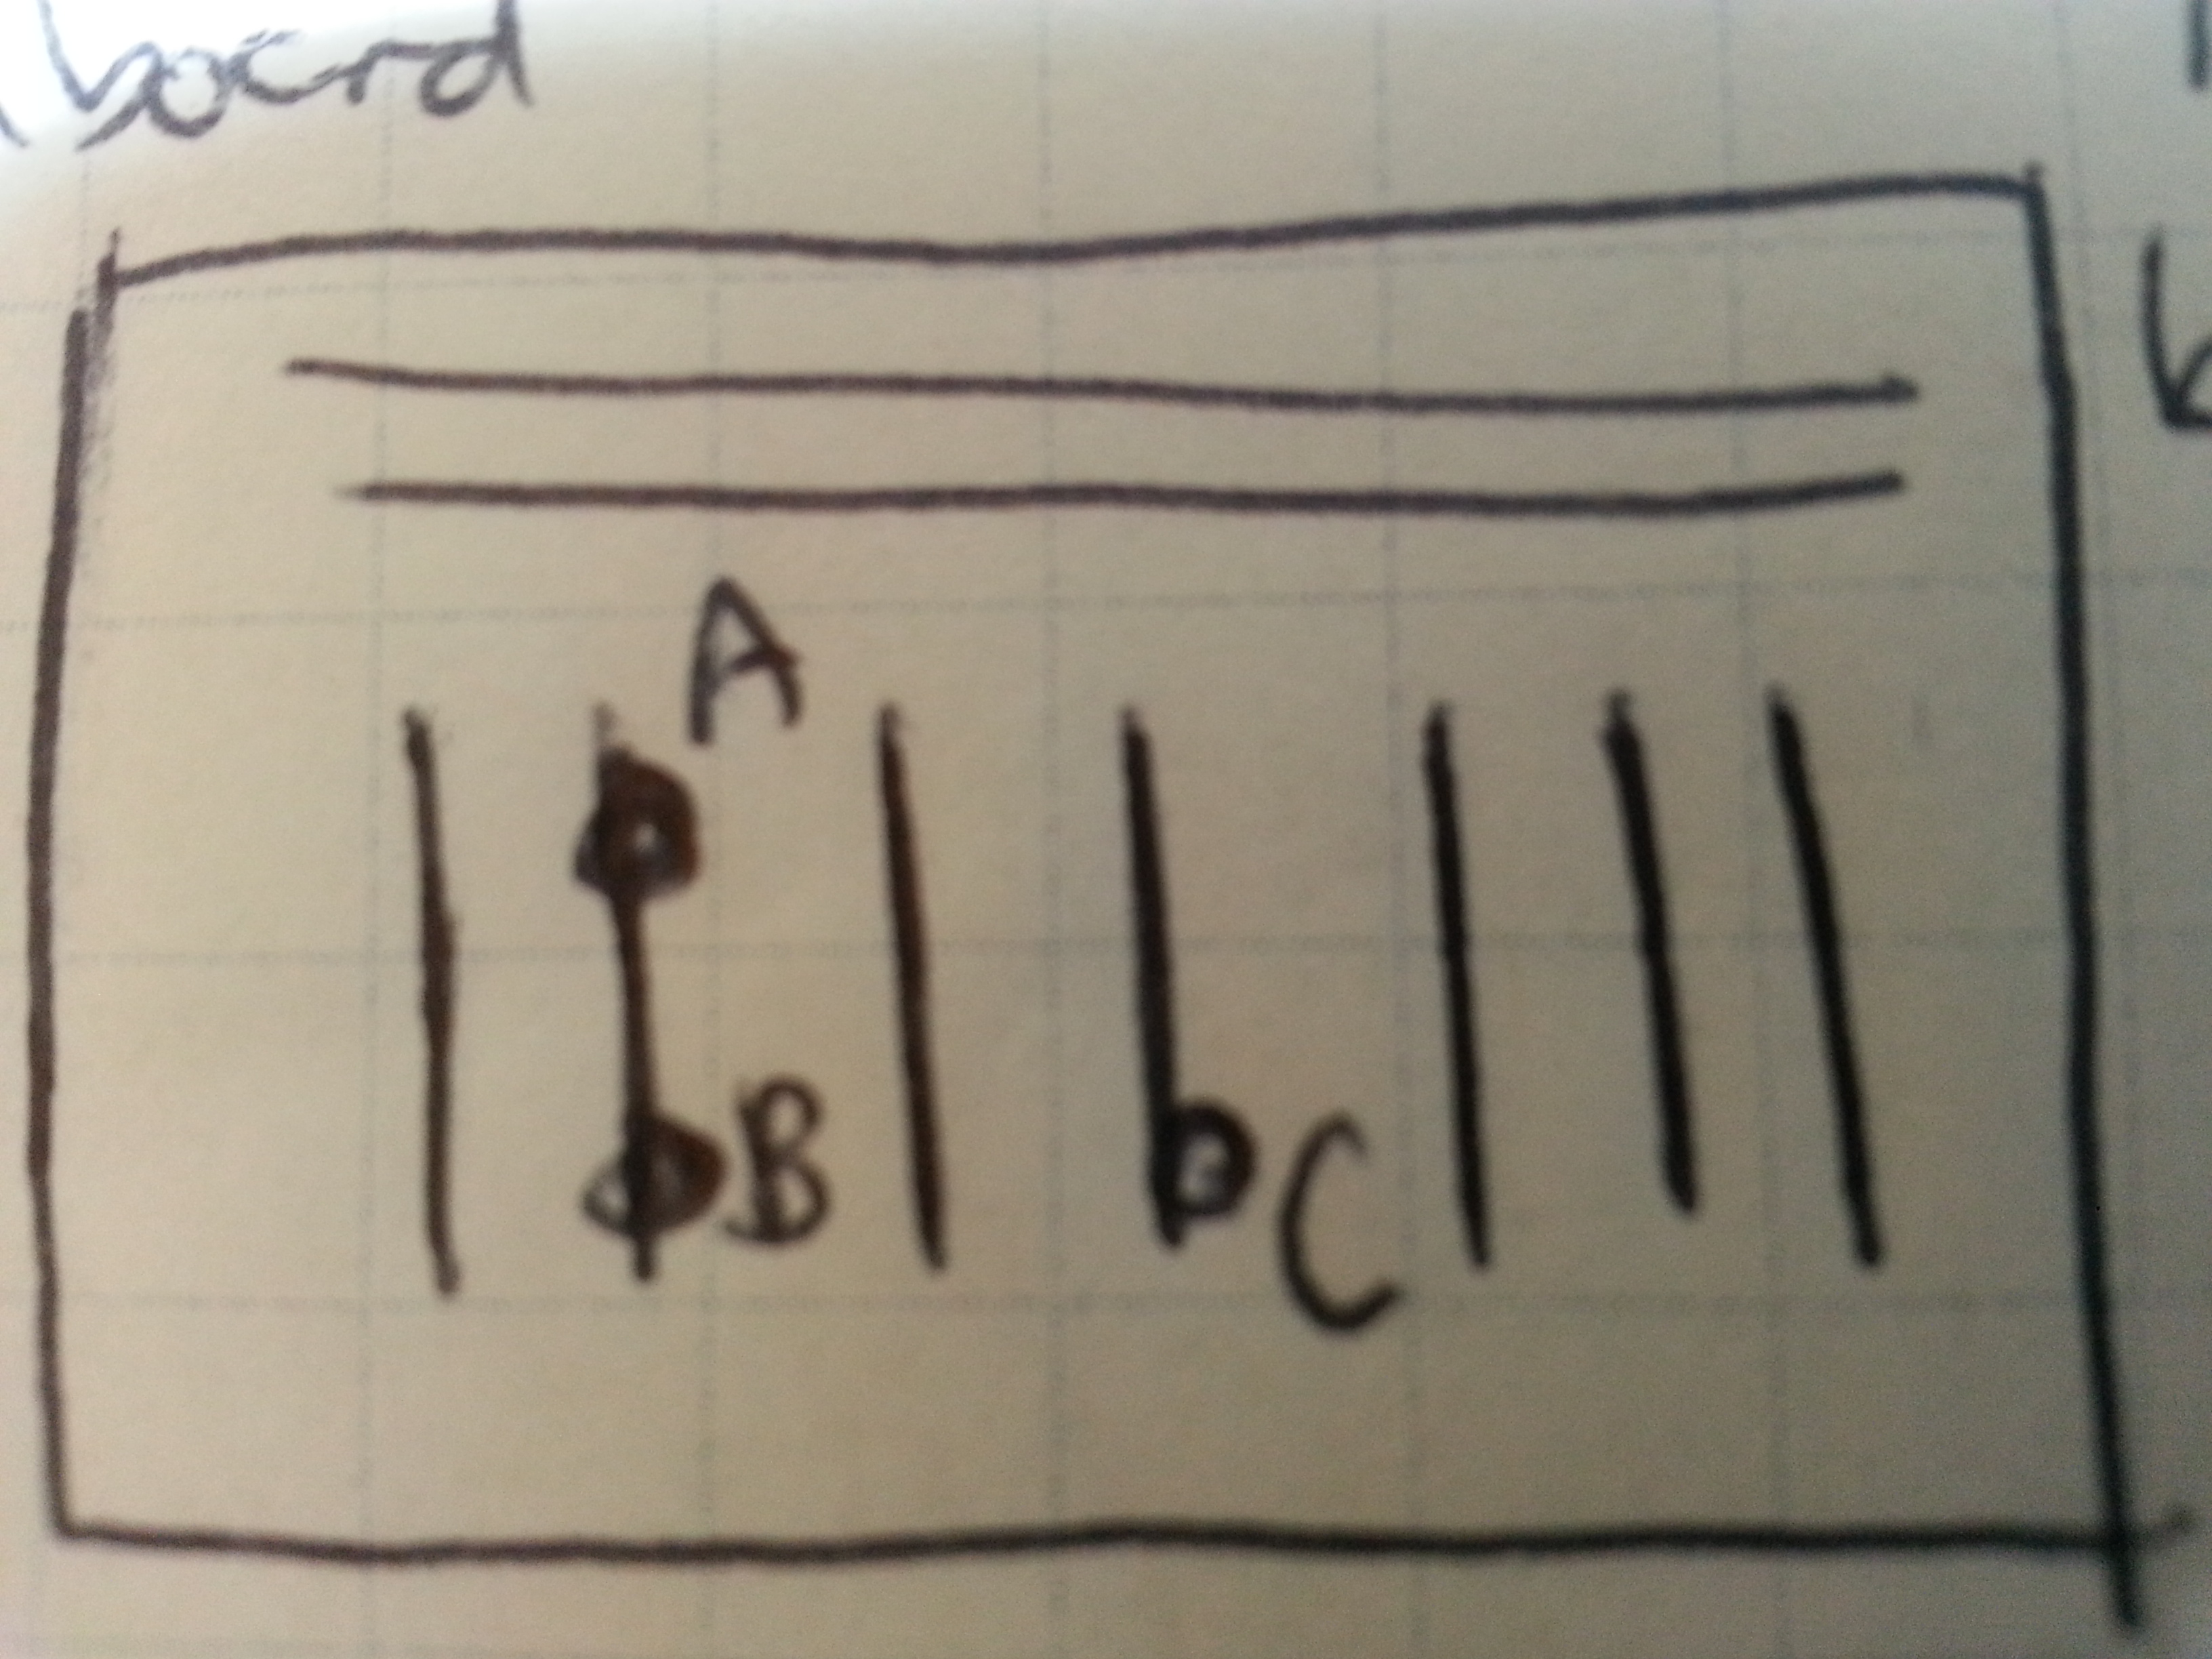 board
A
B
C